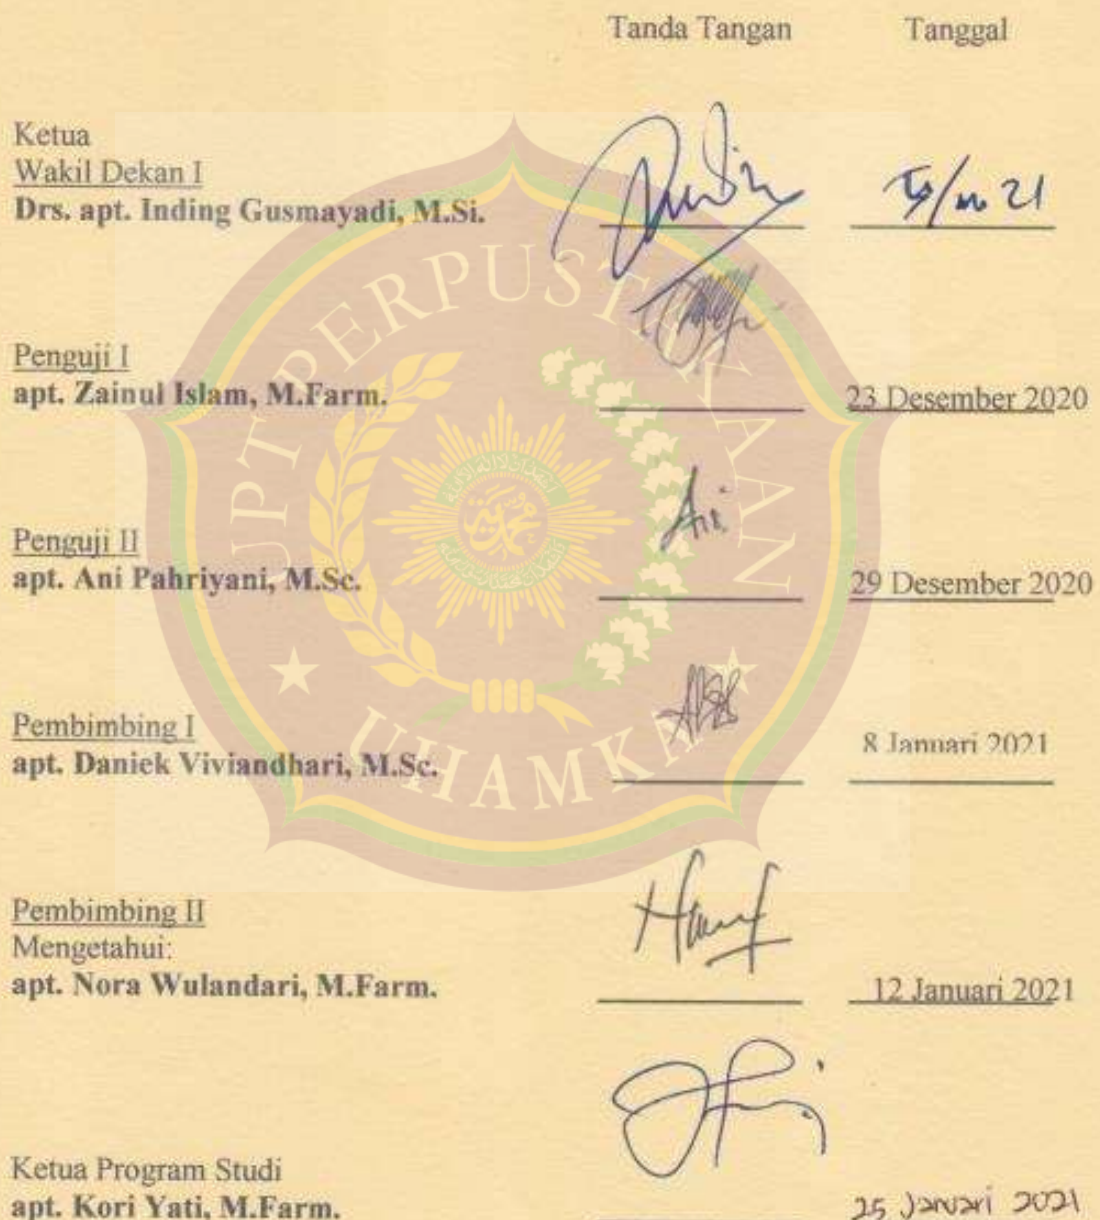 Tanda Tangan Tanggal
Ketua
Wakil Dekan I
Drs. apt. Inding Gusmayadi, M.Si.
21
Penguji I
apt. Zainul Islam, M.Farm. 23 Desember 2020
Penguji II
apt. Ani Pahriyani, M.Sc. 29 Desember 2020
Pembimbing I
apt. Daniek Viviandhari, M.Sc. 8 Januari 2021
Pembimbing II
Mengetahui:
apt. Nora Wulandari, M.Farm. 12 Januari 2021
Ketua Program Studi
apt. Kori Yati, M.Farm. 25 Januari 2021
UPT PERPUSTAKAAN
UHAMKA